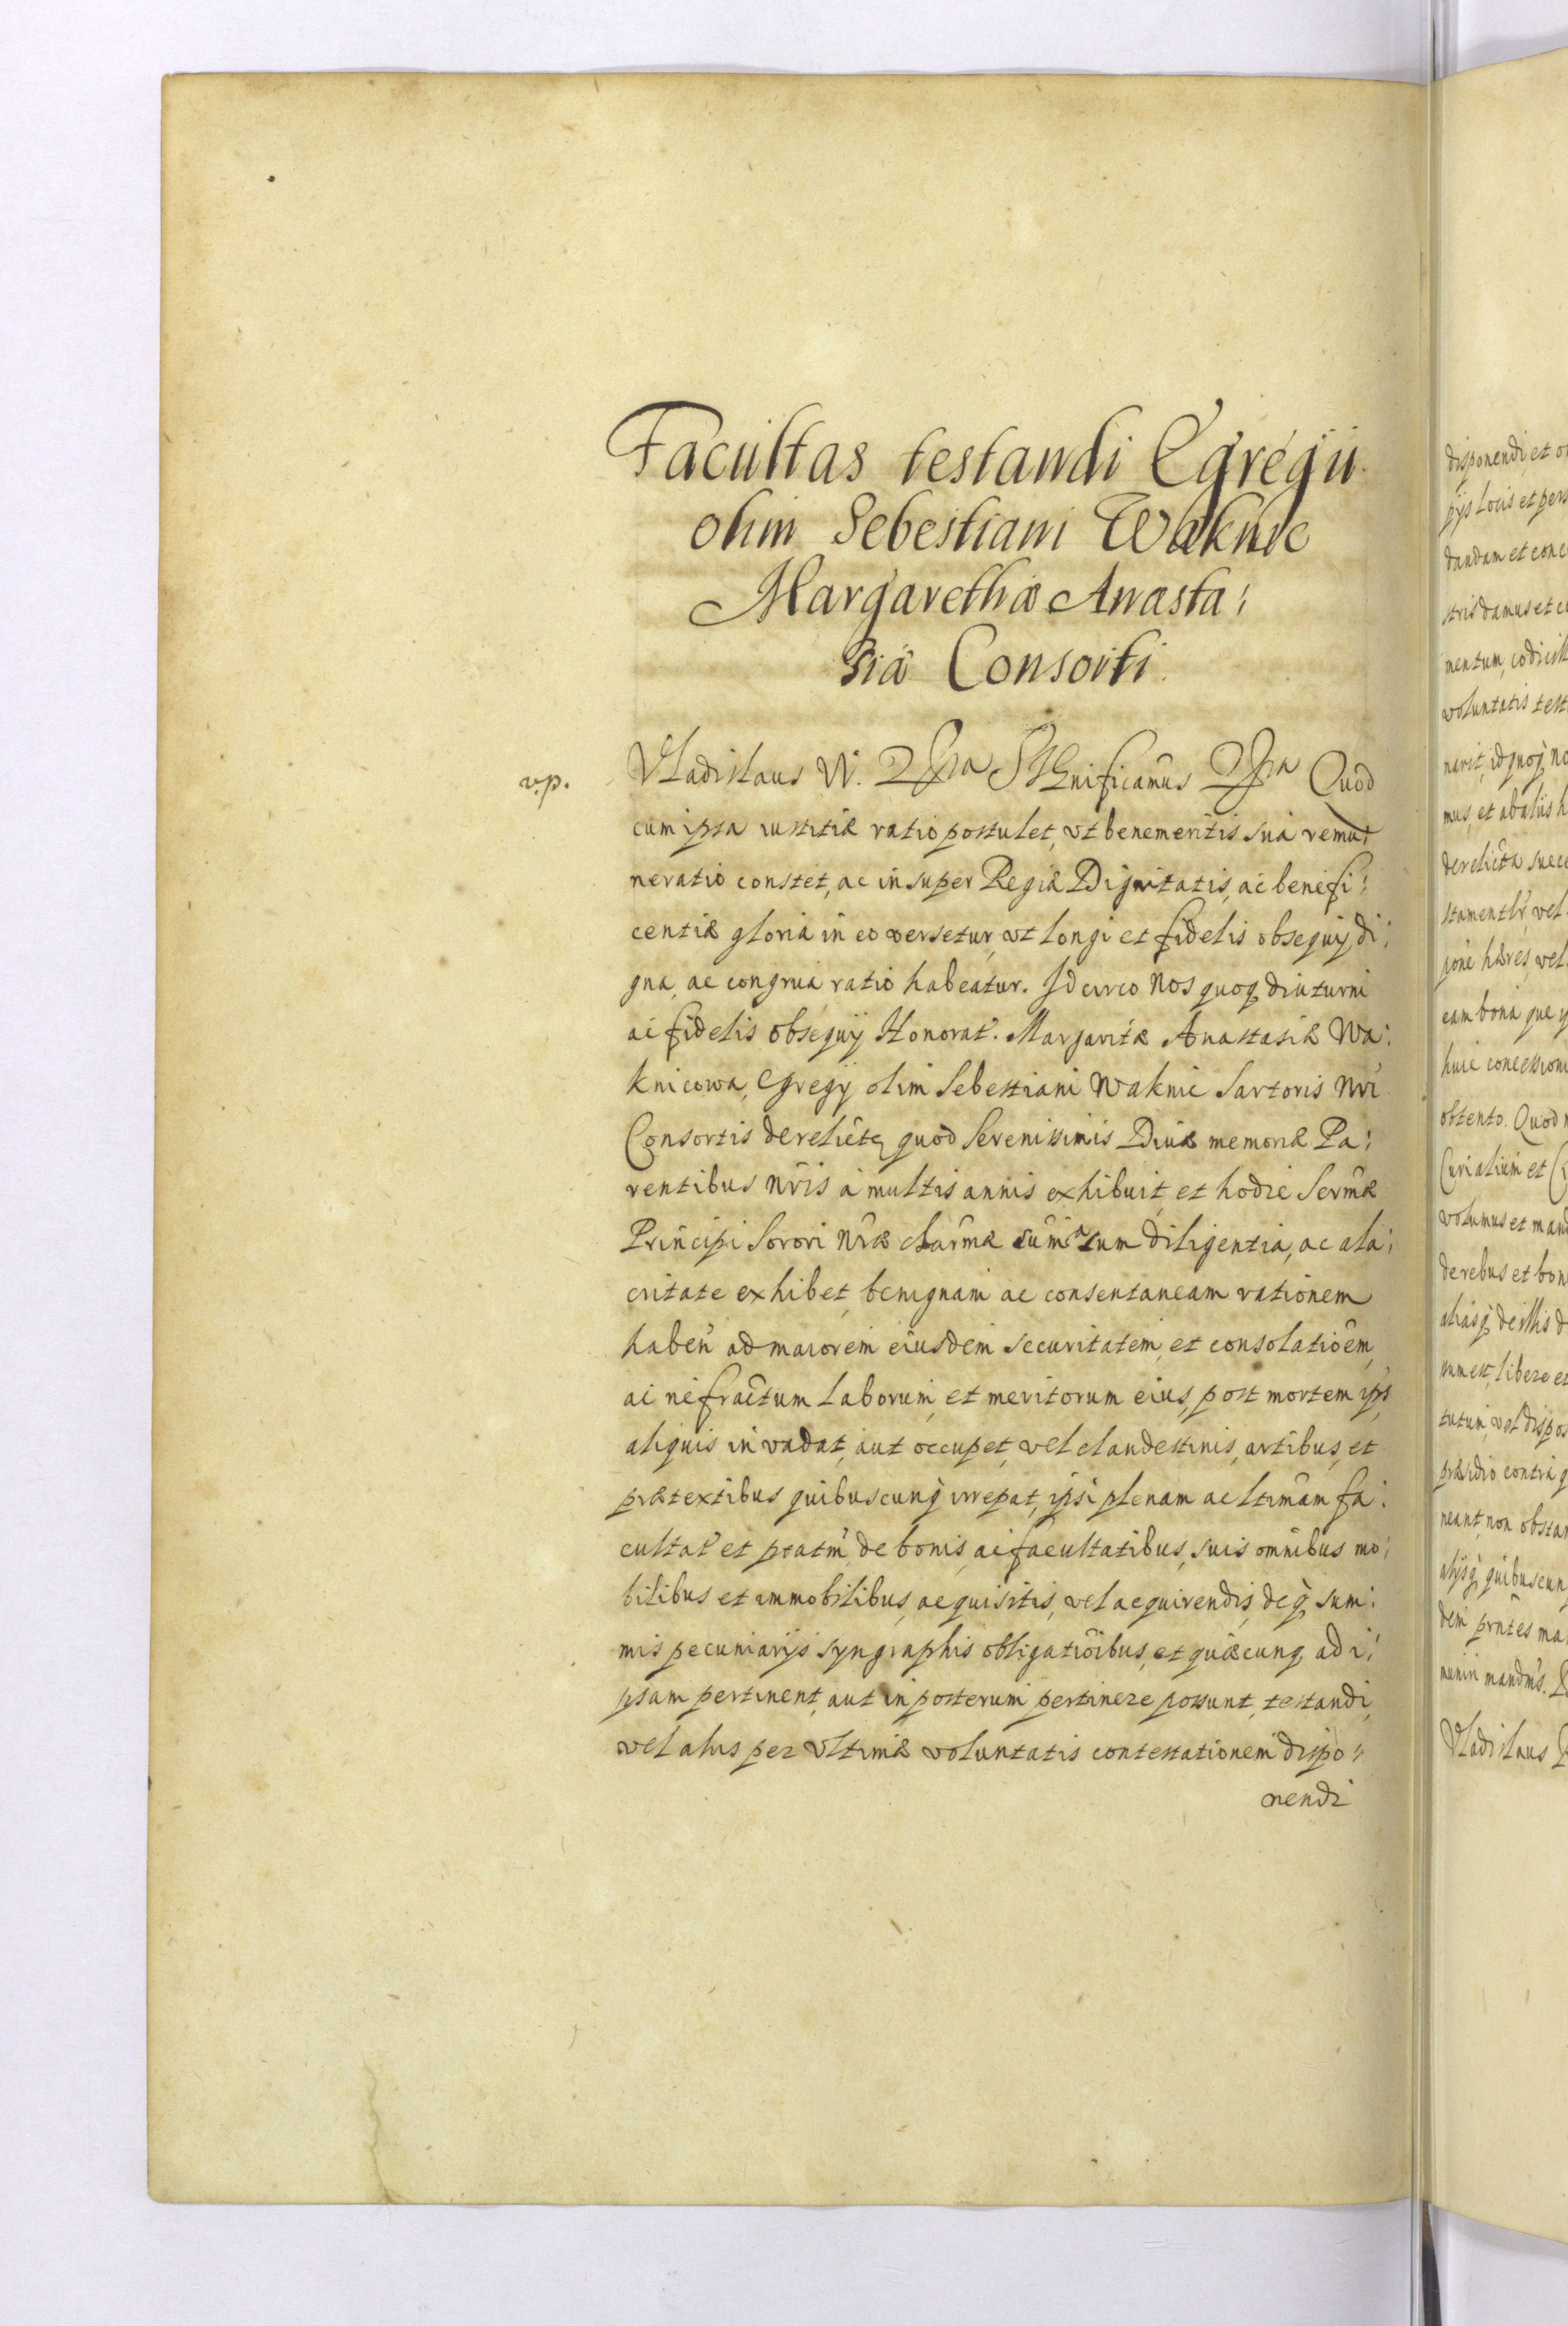 Facultas testandi Egregii
olim Sebestiani Waknic
Margarethæ Anasta:
siæ Consorti.
v.p.
Vladislaus IV. Significamus Quod
cum ipsa iustitiæ ratio postulet, vt benemeritis sua remu
neratio constet, ac insuper Regiæ Dignitatis, ac benefi:
centiæ gloria in eo versetur, vt longi et fidelis obsequij di:
gna, ac congrua ratio habeatur. Idcirco Nos quoq diuturni
ac fidelis obsequij Honorat. Margaritæ Anastasiæ Wa:
knicowa, Egregij olim Sebestiani Waknic Sartoris Nri
Consortis derelictę quod Serenissimis Diuæ memoriæ Pa:
rentibus nris à multis annis exhibuit, et hodie Sermæ
Principi Sorori Nræ charmæ cum diligentia, ac ala:
critate exhibet, benignam ac consentaneam rationem
haben ad maiorem eiusdem securitatem, et consolatioem,
ac ne fructum laborum, et meritorum eius, post mortem ips
aliquis invadat, aut occupet, vel clandestinis, artibus, et
prætextibus quibuscunq irrepat, ipsi plenam ac ltimam fa:
cultat et ptatm, de bonis, ac facultatibus, suis omnibus mo:
bilibus et immobilibus, acquisitis, vel acquirendis, deq sum:
mis pecuniarijs syngraphis obligatioibus, et quæcunq ad i:
psam pertinent, aut in posterum pertinere possunt, testandi,
vel alius per vltimæ voluntatis contestationem dispo:
nendi
disponendi, et
pijs locis et pers
dandam et conc
stris damus et c
mentum, codicill
voluntatis test
narit, id quoq no
mus, et ab aliis h
derelicta succ
stamentlr, vel
pone hæres, vel
eam bona que
huic concession
obtento. Quod
Curialium et
volumus et mand
de rebus et bon
aliasq de illis d
libere et
tutum, vel dispos
præsidio contra q
neant, non obstan
alijsq quibuscunq
dem pntes ma
muniri mandms.
Vladislaus